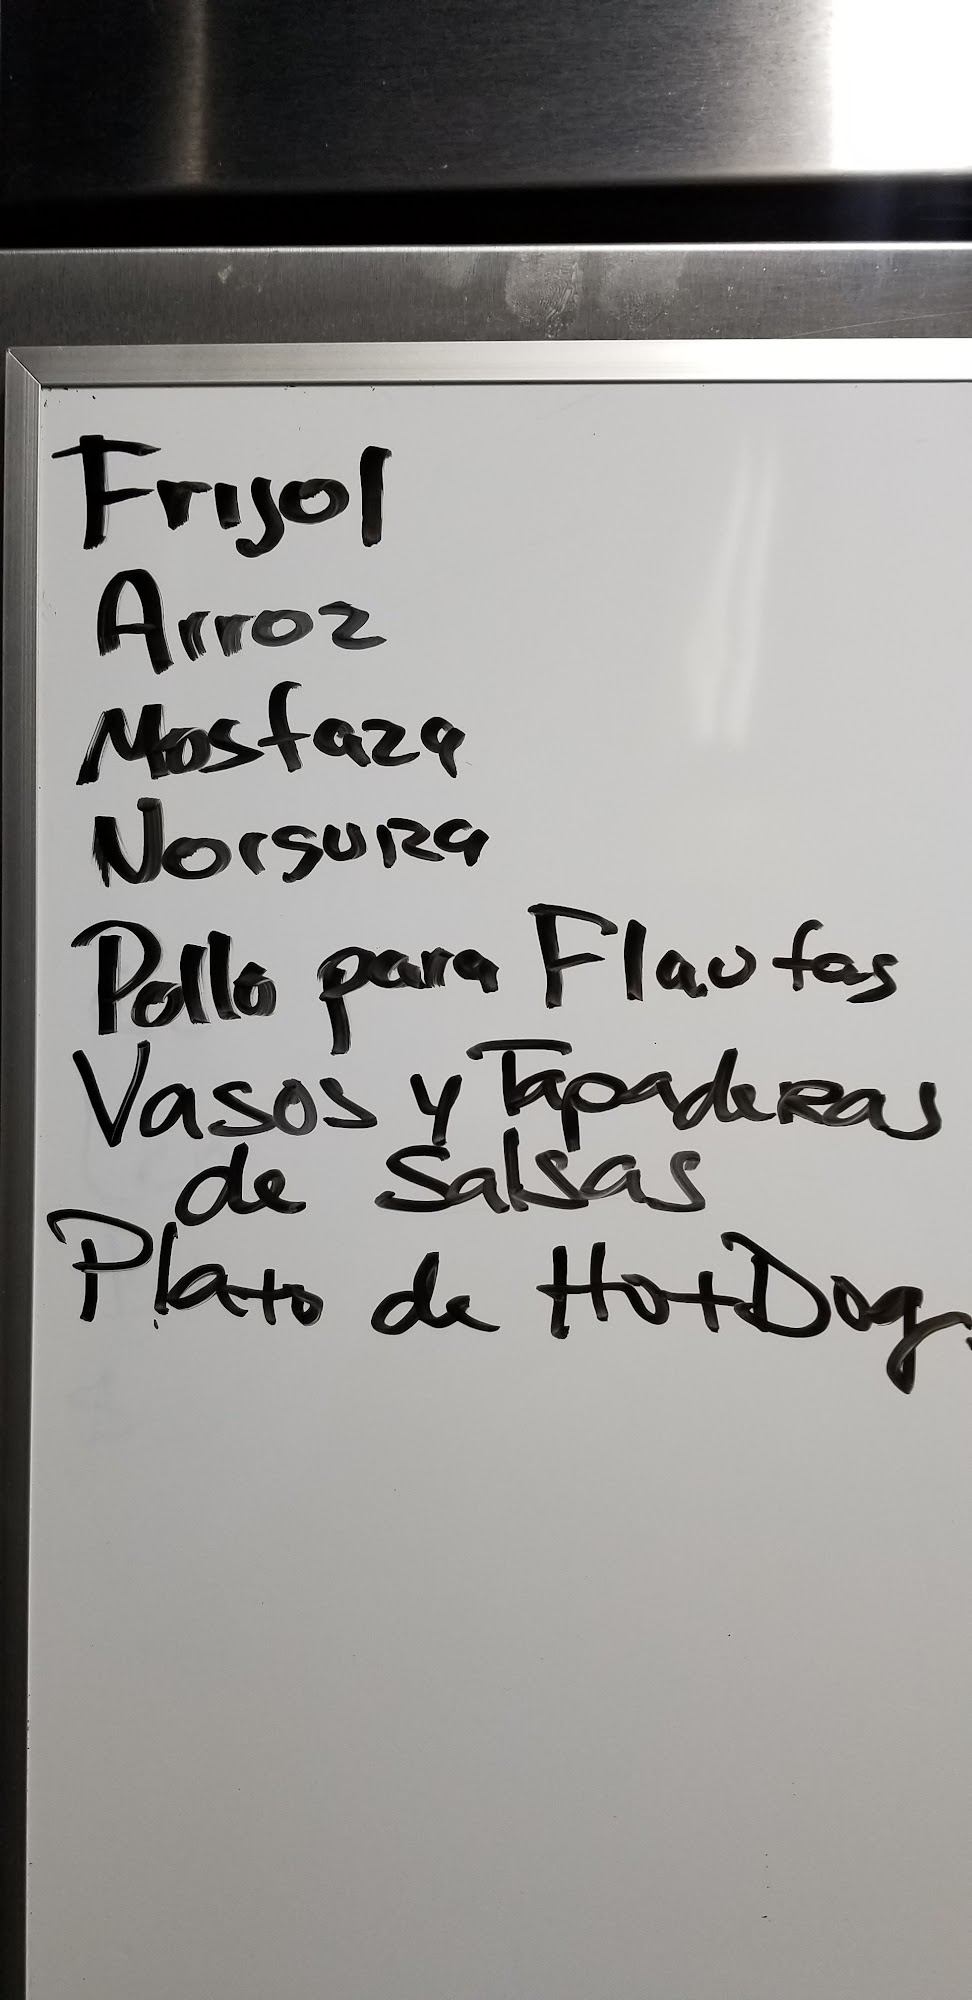 Frijol
Arroz
Mostaza
Norsuiza
Pollo para Flautas
Vasos y Tapaderas
de Salsas
Plato de Hot Dog